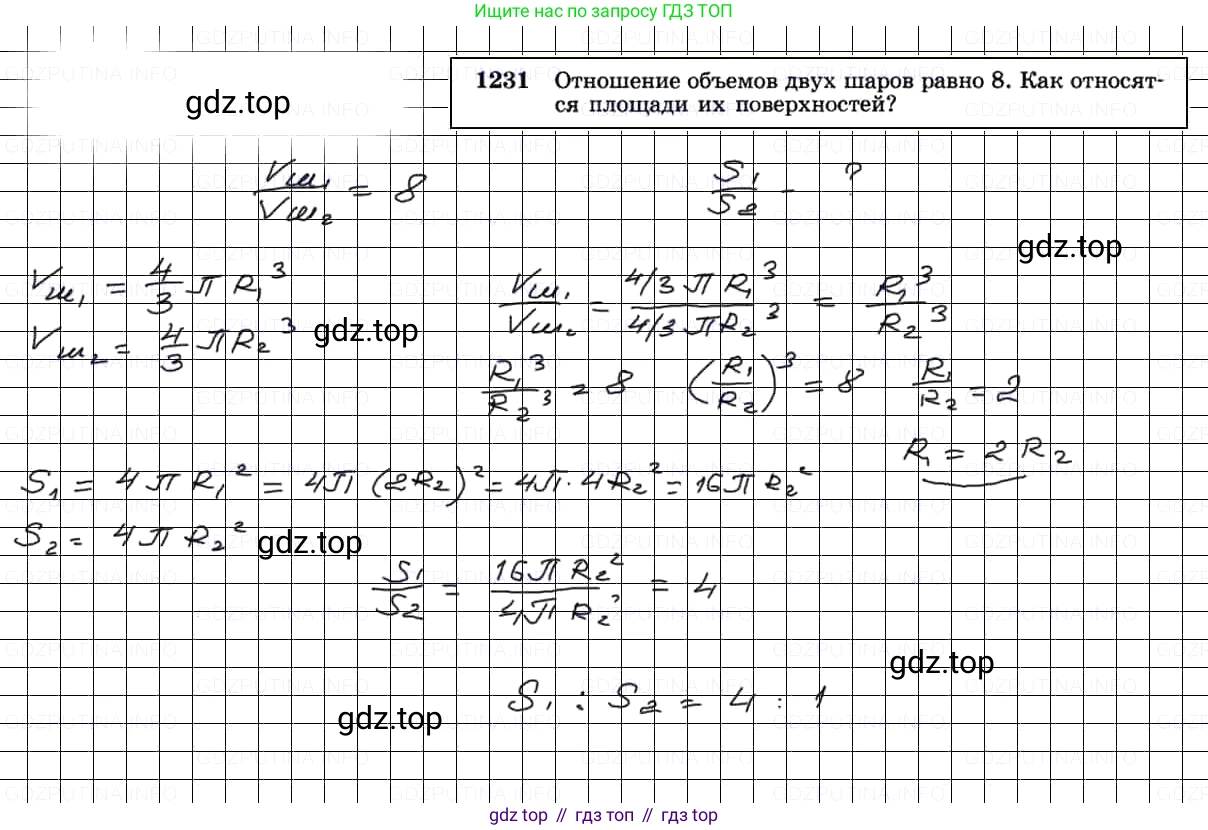 Ищите нас по запросу ГДЗ ТОП
gdz.top
1231 Отношение объемов двух шаров равно 8. Как относят-
ся площади их поверхностей?
Vш₁/Vш₂ = 8
S₁/S₂ - ?
gdz.top
Vш₁ = 4/3 π R₁³
Vш₂ = 4/3 π R₂³
gdz.top
Vш₁/Vш₂ = 4/3 π R₁³ / 4/3 π R₂³ = R₁³/R₂³
R₁³/R₂³ = 8 (R₁/R₂)³ = 8 R₁/R₂ = 2
R₁ = 2 R₂
S₁ = 4 π R₁² = 4π (2R₂)² = 4π · 4R₂² = 16π R₂²
S₂ = 4 π R₂²
gdz.top
S₁/S₂ = 16π R₂² / 4π R₂² = 4
gdz.top
S₁ : S₂ = 4 : 1
gdz.top
gdz top // гдз топ // gdz top